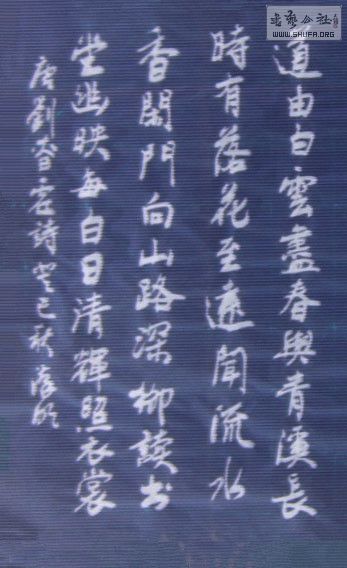 书艺公社
WWW.SHUFA.ORG
道由白雲盡春與青溪長
時有落花至遠聞流水
香閑門向山路深柳讀书
堂幽映每白日清輝照衣裳
唐劉昚虛詩癸巳秋